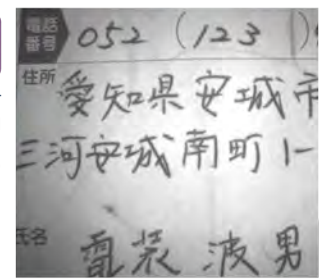 電話番号 052 (123 )
住所 愛知県安城市
三河安城南町1-
氏名 電装 波男